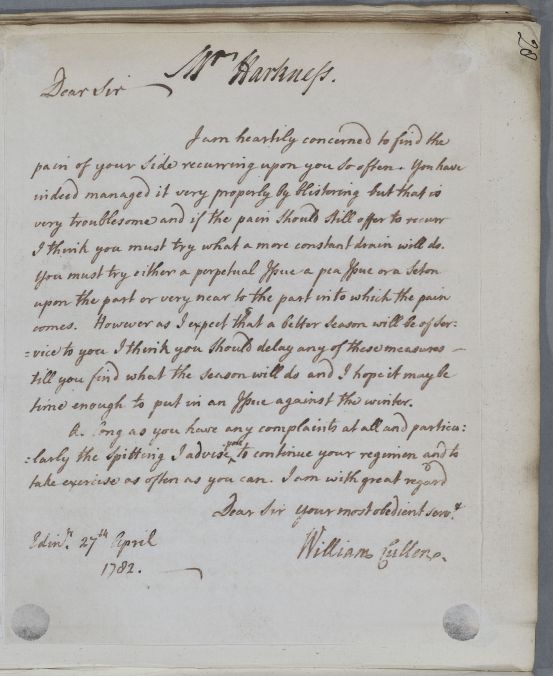 28
Mr Harkness.
Dear Sir
I am heartily concerned to find the
pain of your side recurring upon you so often. You have
indeed managed it very properly by blistering but that is
very troublesome and if the pain should still offer to recurr
I think you must try what a more constant drain will do.
You must try either a perpetual Issue a pea Issue or a Seton
upon the part or very near to the part into which the pain
comes. However as I expect that a better season will be of ser:
:vice to you I think you should delay any of these measures
till you find what the season will do and I hope it may be
time enough to put in an Issue against the winter.
As long as you have any complaints at all and particu:
:larly the spitting I advise you to continue your regimen and to
take exercise as often as you can. I am with great regard
Dear Sir your most obedient servt
Edinr. 27th April
William Cullen.
1782.